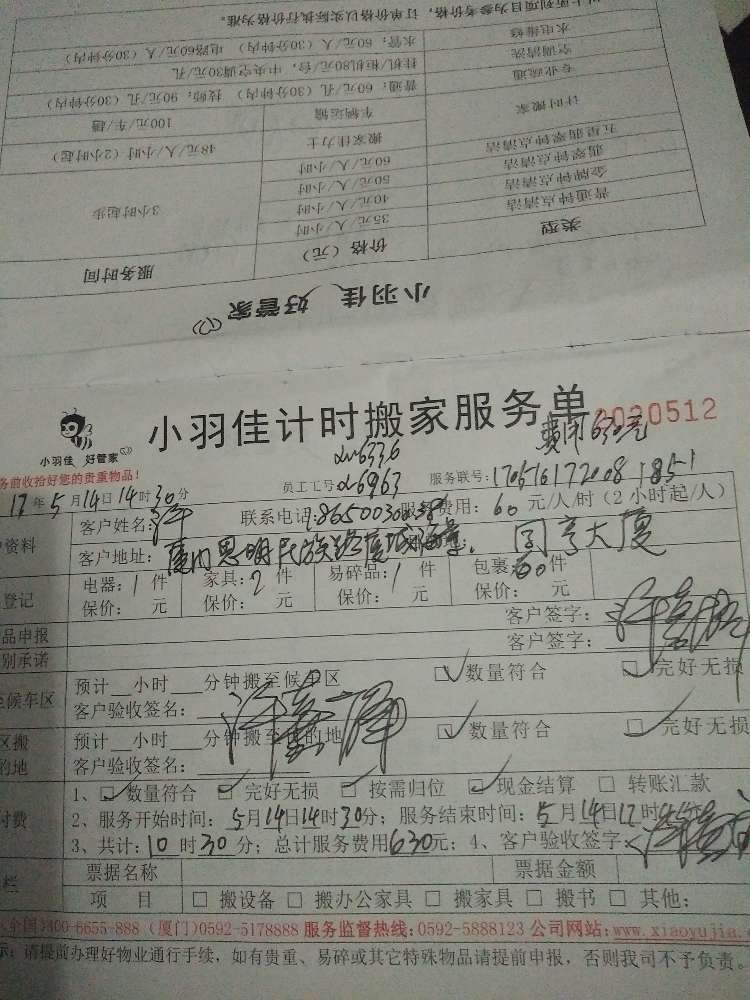 以上所列项目为参考价格，订单价格以实际执行价格为准。
水电维修 水管：60元/人（30分钟内） 电路60元/人（30分钟内）
空调清洗 挂机/柜机80元/台，中央空调30元/孔
专业疏通 普通：60元/孔（30分钟内） 技师：90元/孔（30分钟内）
计时搬家 车辆运输 100元/车/趟
搬家佳力士 48元/人/小时（2小时起）
五星翡翠钟点清洁 60元/人/小时
翡翠钟点清洁 50元/人/小时
金牌钟点清洁 40元/人/小时 3小时起步
普通钟点清洁 35元/人/小时
类型 价格（元） 服务时间
小羽佳 好管家
小羽佳 好管家
小羽佳计时搬家服务单
0020512
费用630元
务前收拾好您的贵重物品！
员工工号 6336
6963
服务联号：170516172008 1851
17年5月14日14时30分
户资料 客户姓名：许 联系电话： 服务费用：60元/人/时（2小时起/人）
客户地址：厦门思明民族路 同亨大厦
登记 电器：1件 家具：2件 易碎品：1件 包裹：60件
保价： 元 保价： 元 保价： 元 保价： 元
品申报 客户签字：
别承诺 客户签字：
至候车区 预计__小时__分钟搬至候车区 ☑数量符合 ☑完好无损
客户验收签名：
区搬 预计__小时__分钟搬至目的地 ☑数量符合 ☑完好无损
的地 客户验收签名：
付费 1、☑数量符合 ☑完好无损 ☑按需归位 ☑现金结算 □转账汇款
2、服务开始时间：5月14日14时30分；服务结束时间：5月14日17时
3、共计：10时30分；总计服务费用630元；4、客户验收签字：
栏 票据名称 票据金额
项 目 □搬设备 □搬办公家具 □搬家具 □搬书 □其他：
全国)400-6655-888 (厦门)0592-5178888 服务监督热线:0592-5888123 公司网站:www.xiaoyujia.
示:请提前办理好物业通行手续，如有贵重、易碎或其它特殊物品请提前申报，否则我司不予负责。